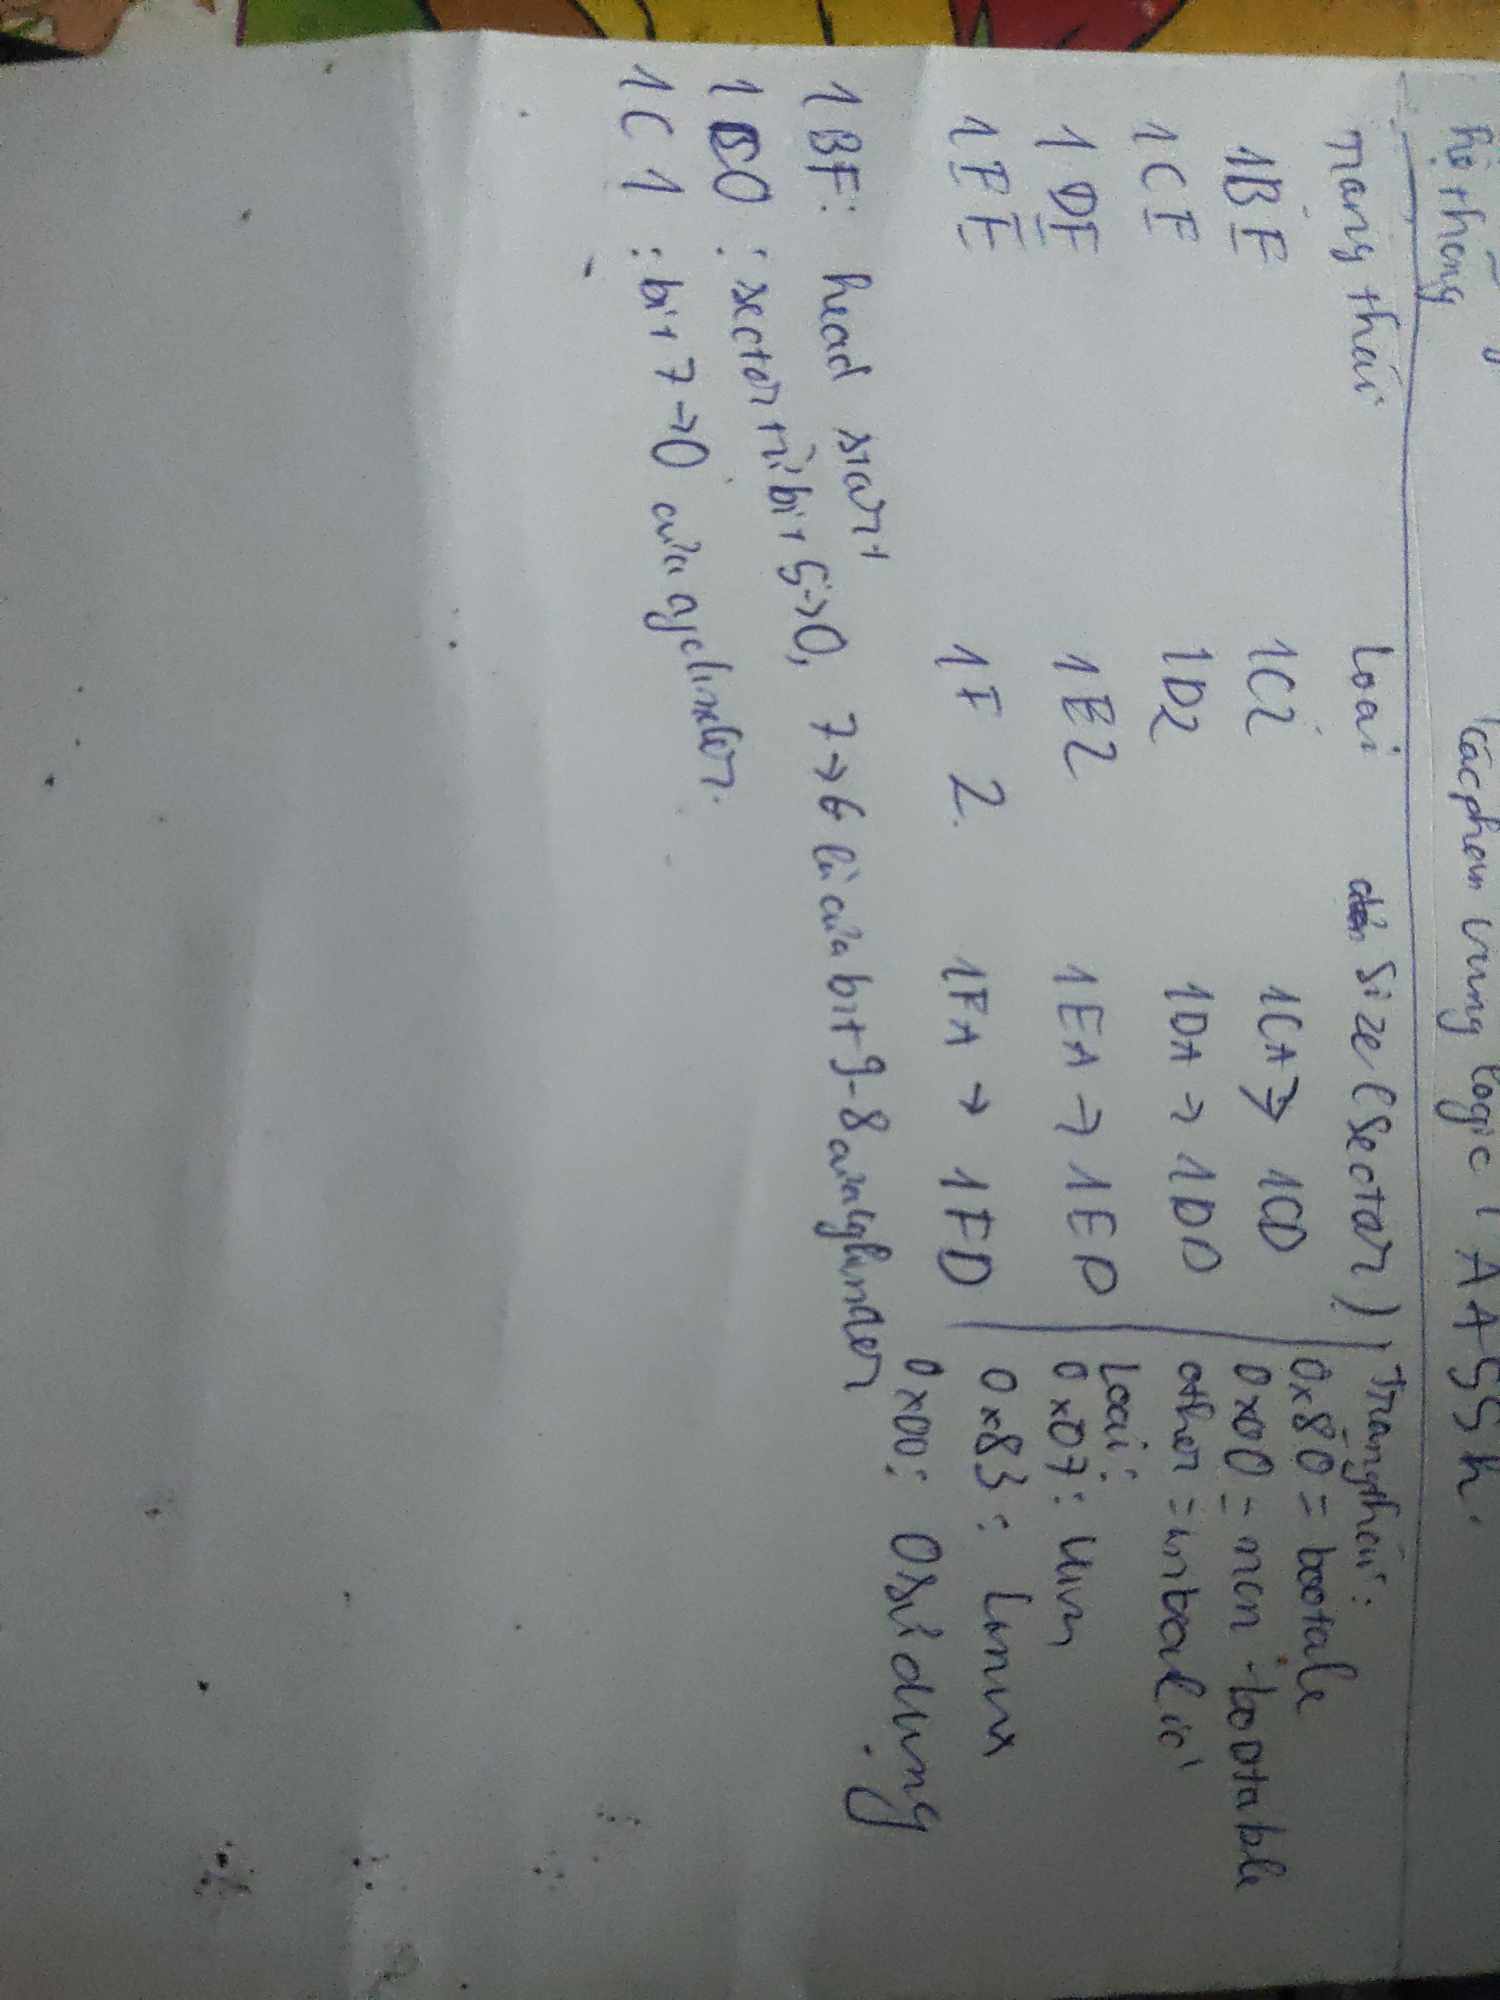 hệ thống
các phân vùng logic AA55h.
Trạng thái Loại Size (sector)
1BE 1C2 1CA → 1CD
1CE 1D2 1DA → 1DD
1DE 1E2 1EA → 1ED
1EE 1F2. 1FA → 1FD
Trạng thái:
0x80 = bootale
0x00 = non-bootable
other =
Loại:
0x07: Win
0x83: Linux
0x00: 0 sử dụng
1BF: head start
1C0: sector từ bit 5→0, 7→6 là của bit 9-8 của cylinder
1C1: bit 7→0 của cylinder.